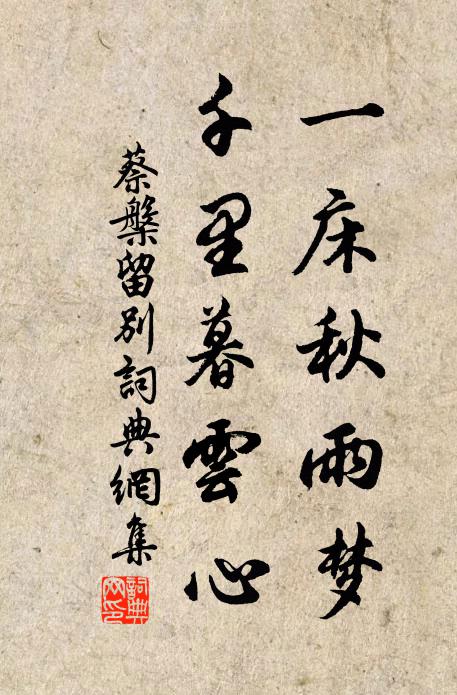 一床秋雨梦
千里暮雲心
蔡槃留别詞典網集
詞典網印